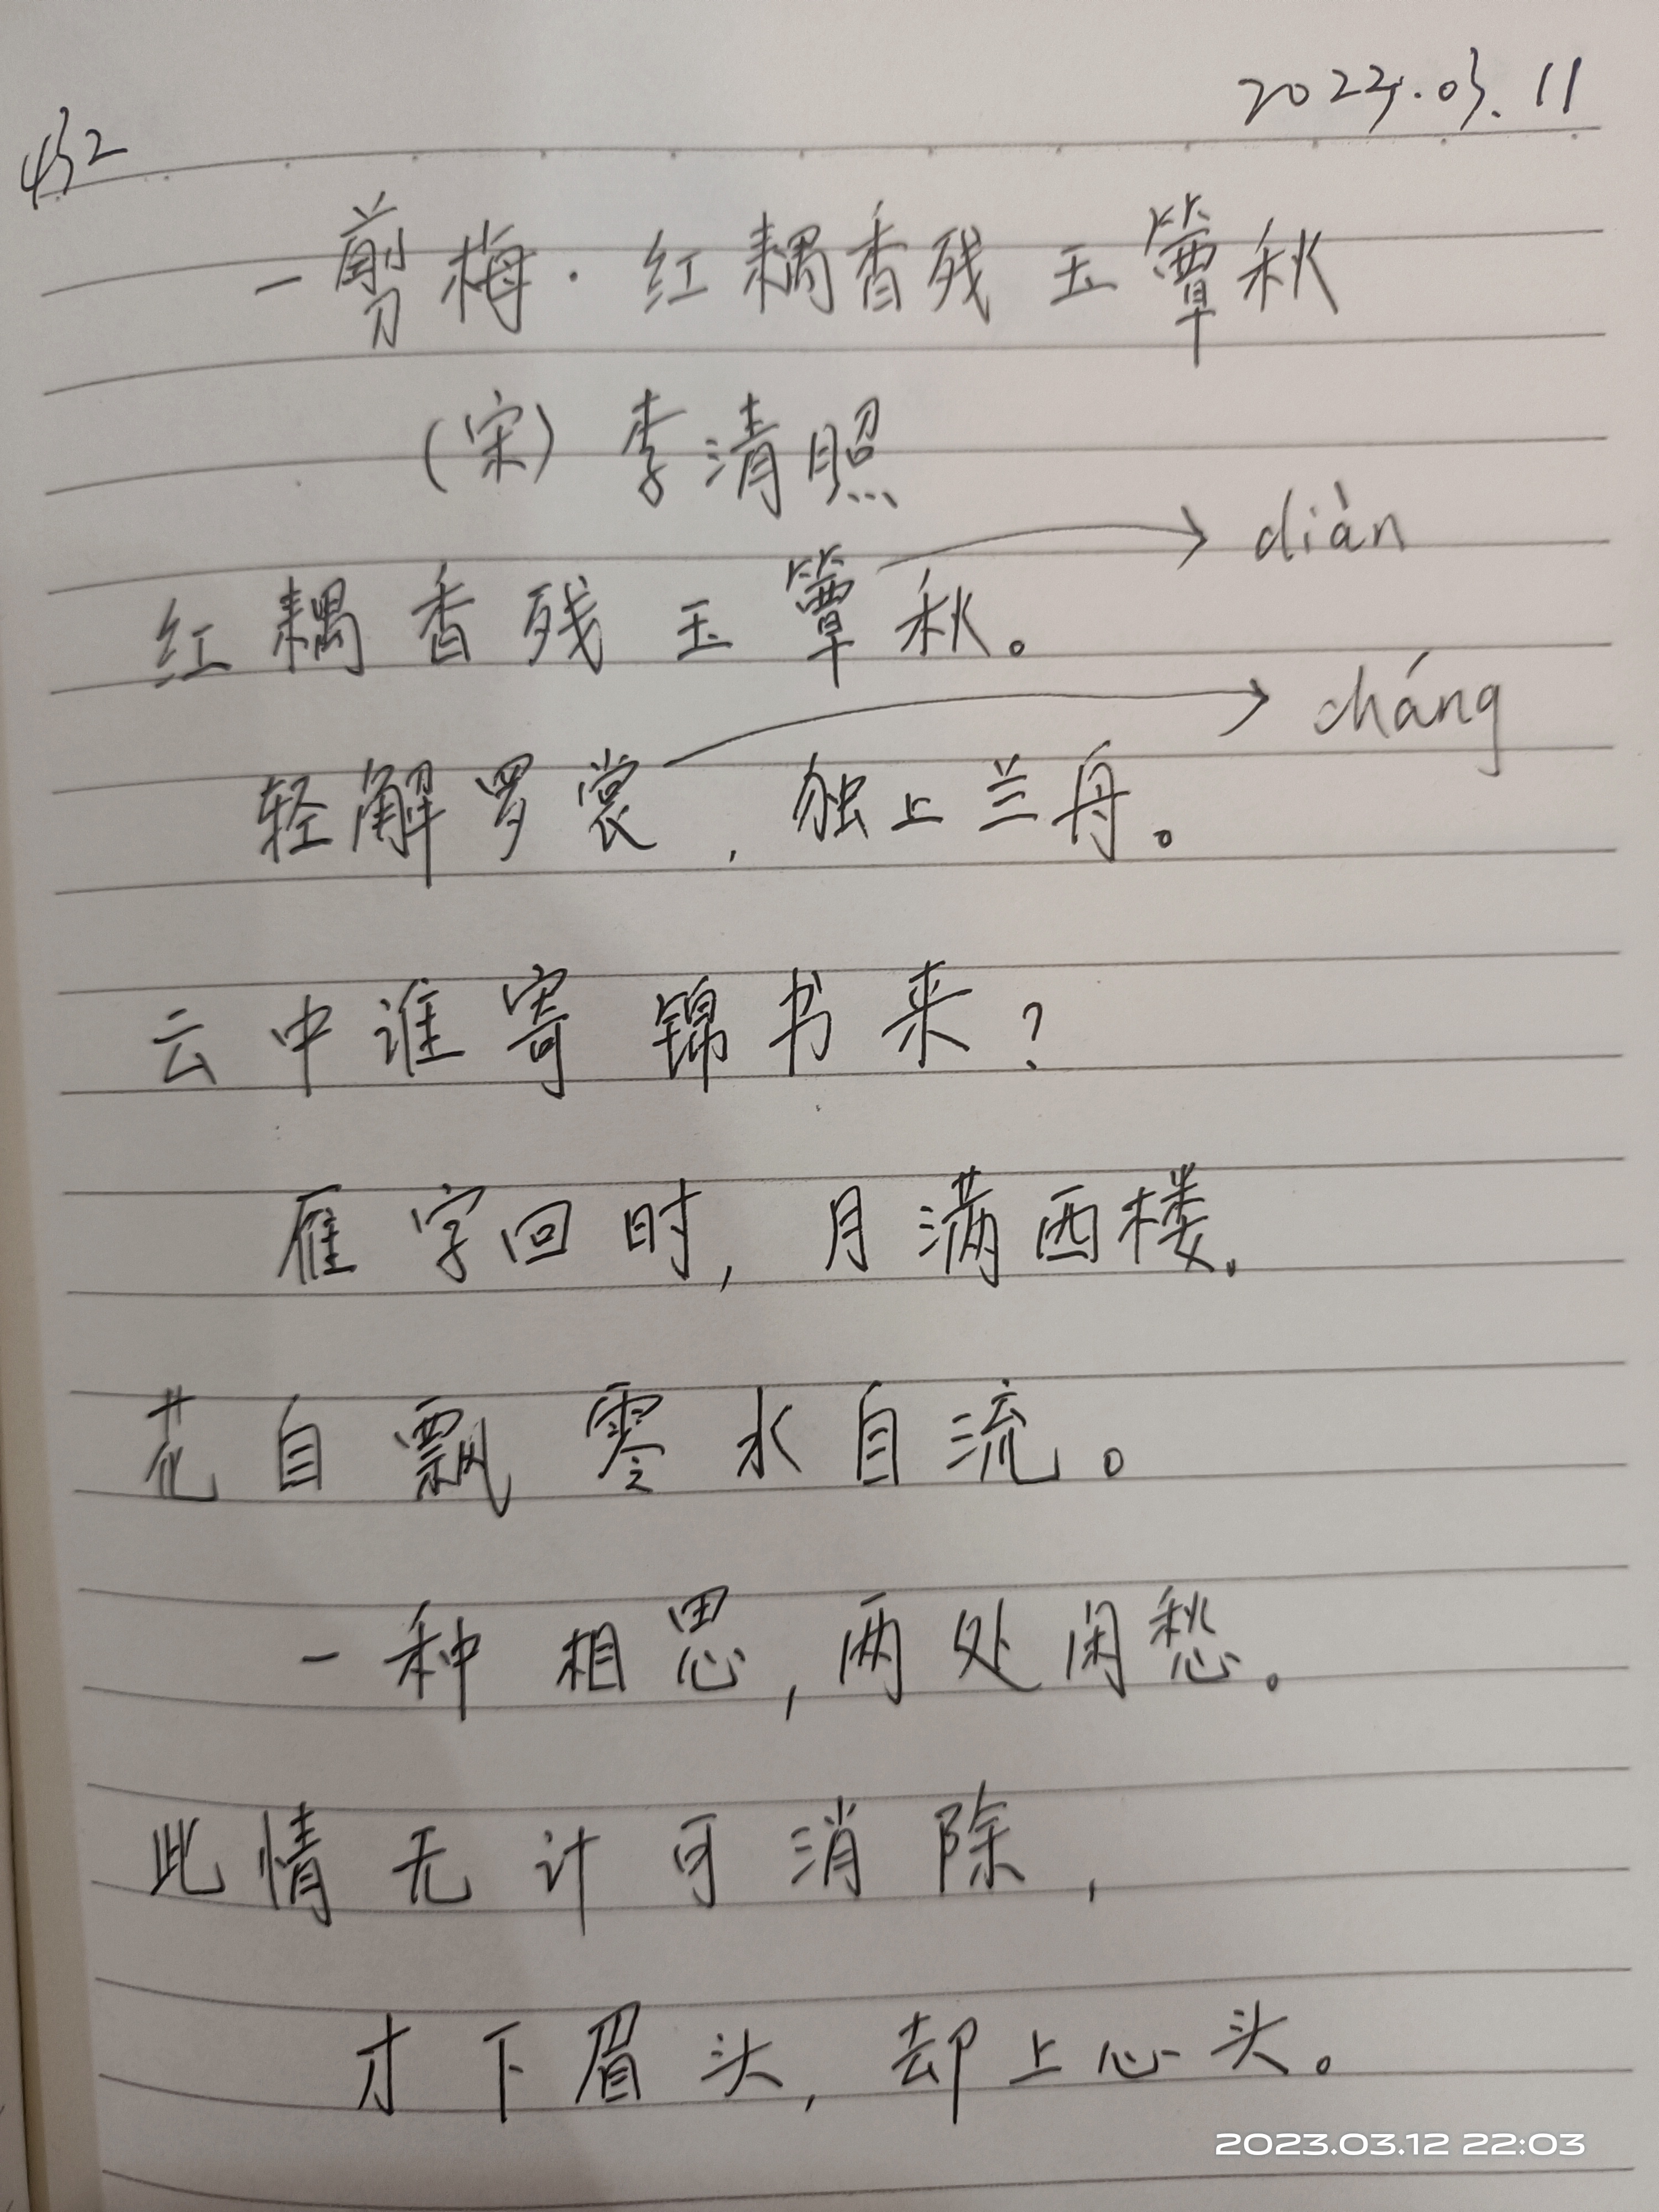 432
2023.03.11
一剪梅·红耦香残玉簟秋
(宋)李清照
红耦香残玉簟秋。 → diàn
轻解罗裳,独上兰舟。 → cháng
云中谁寄锦书来?
雁字回时,月满西楼。
花自飘零水自流。
一种相思,两处闲愁。
此情无计可消除,
才下眉头,却上心头。
2023.03.12 22:03